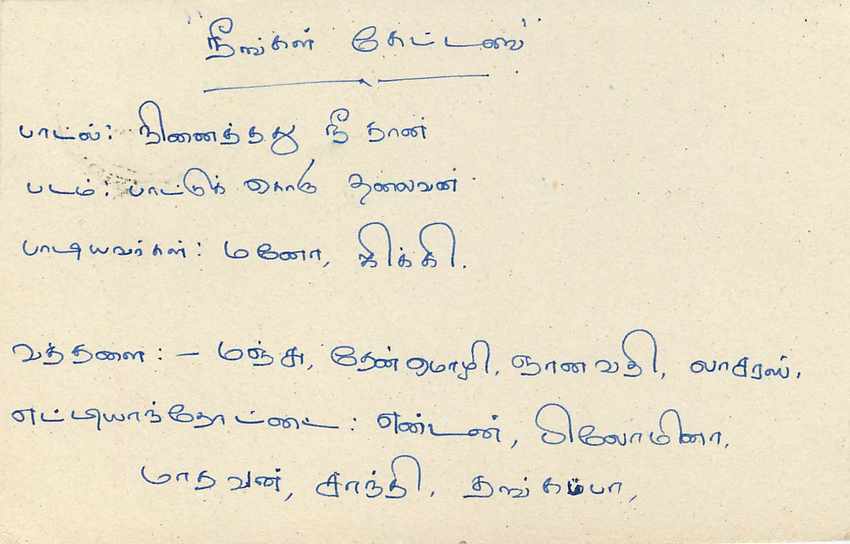 "நீங்கள் கேட்டவை"
பாடல்: நினைத்தது நீ தான்
படம்: பாட்டுக் கொரு தலைவன்
பாடியவர்கள்: மனோ, ஜிக்கி.
வத்தளை: - மஞ்சு, தேன்மொழி, ஞானவதி, லாசரஸ்,
எட்டியாந்தோட்டை: எண்டன், பிலோமினா,
மாதவன், சாந்தி, தங்கம்பா,